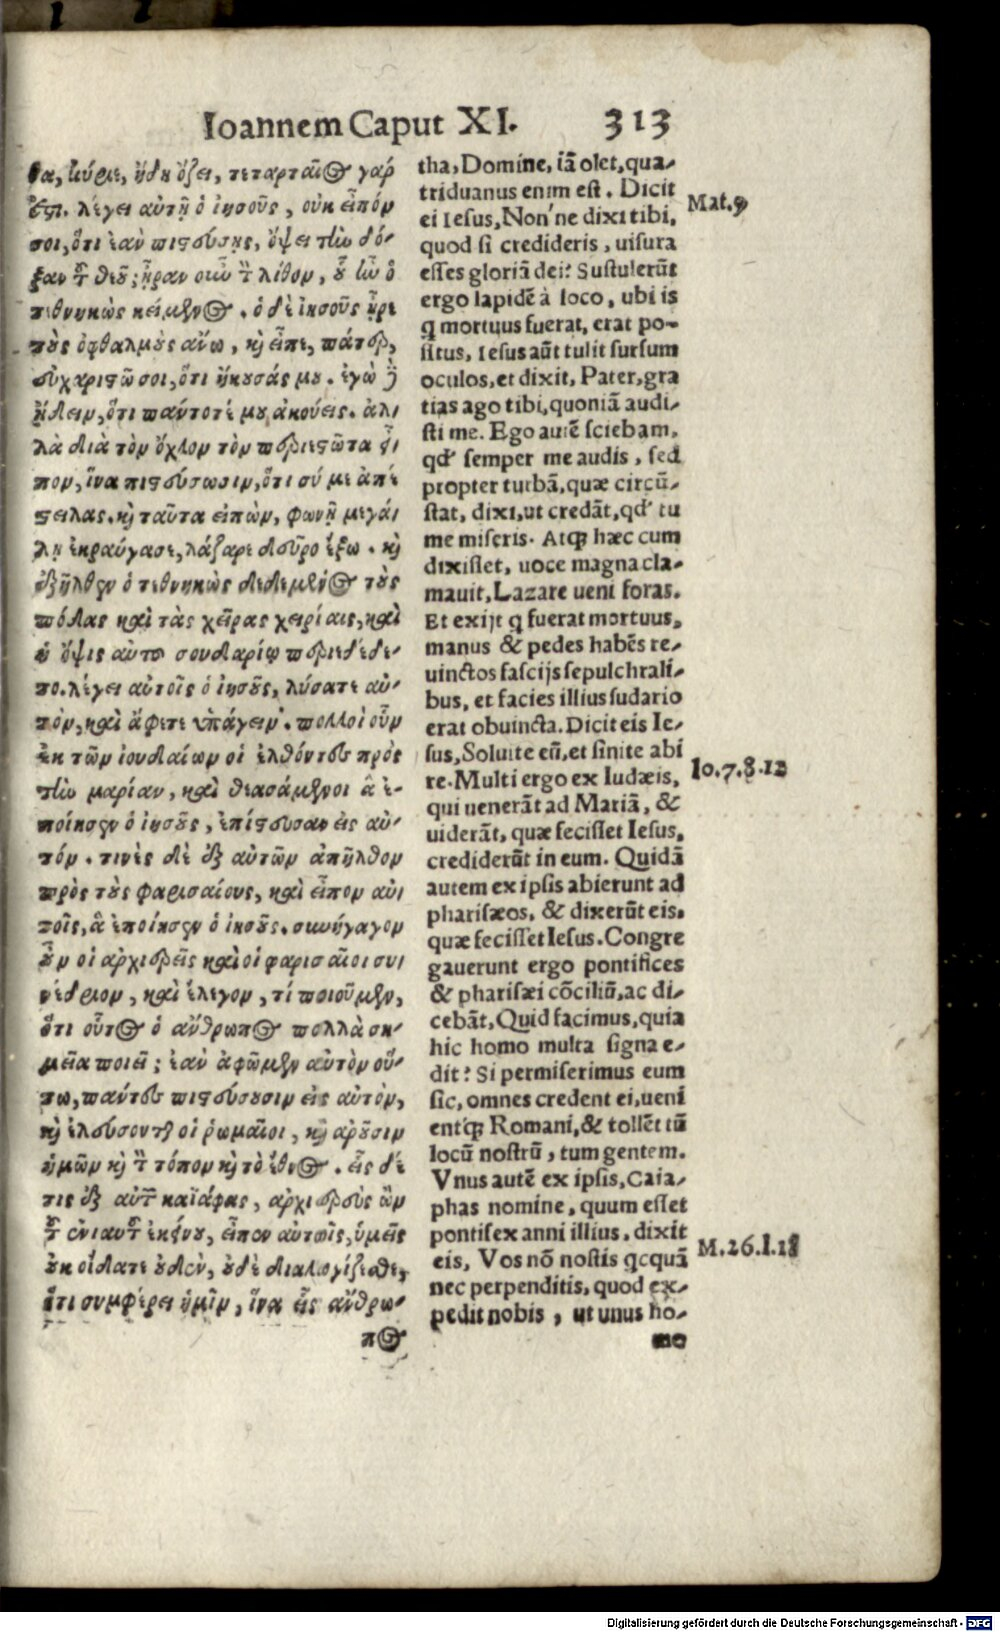 Ioannem Caput XI. 313
θα, κύριε, ἤδη ὄζει, τεταρταῖος γάρ
ἐστι. λέγει αὐτῇ ὁ ἰησοῦς, οὐκ εἶπόμ
σοι, ὅτι ἐὰν πιστεύσῃς, ὄψει τὴν δό-
ξαν τοῦ θεοῦ; ἦραν οὖν τὸν λίθον, οὗ ἦν ὁ
τεθνηκὼς κείμενος. ὁ δὲ ἰησοῦς ἦρε
τοὺς ὀφθαλμοὺς ἄνω, καὶ εἶπε, πάτερ,
εὐχαριστῶ σοι, ὅτι ἤκουσάς μου. ἐγὼ δὲ
ᾔδειν, ὅτι πάντοτέ μου ἀκούεις. ἀλ-
λὰ διὰ τὸν ὄχλον τὸν περιεστῶτα εἶ-
πον, ἵνα πιστεύσωσιν, ὅτι σύ με ἀπέ-
στειλας. καὶ ταῦτα εἰπὼν, φωνῇ μεγά-
λῃ ἐκραύγασε, λάζαρε δεῦρο ἔξω. καὶ
ἐξῆλθεν ὁ τεθνηκὼς δεδεμένος τοὺς
πόδας καὶ τὰς χεῖρας χειρίαις, καὶ
ἡ ὄψις αὐτοῦ σουδαρίῳ περιεδέδε-
το. λέγει αὐτοῖς ὁ ἰησοῦς, λύσατε αὐ-
τὸν, καὶ ἄφετε ὑπάγειν. πολλοὶ οὖν
ἐκ τῶν ἰουδαίων οἱ ἐλθόντες πρὸς
τὴν μαρίαν, καὶ θεασάμενοι ἃ ἐ-
ποίησεν ὁ ἰησοῦς, ἐπίστευσαν εἰς αὐ-
τόν. τινὲς δὲ ἐξ αὐτῶν ἀπῆλθον
πρὸς τοὺς φαρισαίους, καὶ εἶπον αὐ-
τοῖς, ἃ ἐποίησεν ὁ ἰησοῦς. συνήγαγον
οὖν οἱ ἀρχιερεῖς καὶ οἱ φαρισαῖοι συ-
νέδριον, καὶ ἔλεγον, τί ποιοῦμεν,
ὅτι οὗτος ὁ ἄνθρωπος πολλὰ ση-
μεῖα ποιεῖ; ἐὰν ἀφῶμεν αὐτὸν οὕ-
τω, πάντες πιστεύσουσιν εἰς αὐτὸν,
καὶ ἐλεύσονται οἱ ῥωμαῖοι, καὶ ἀροῦσιν
ἡμῶν καὶ τὸν τόπον καὶ τὸ ἔθνος. εἷς δέ
τις ἐξ αὐτῶν καϊάφας, ἀρχιερεὺς ὢν
τοῦ ἐνιαυτοῦ ἐκείνου, εἶπεν αὐτοῖς, ὑμεῖς
οὐκ οἴδατε οὐδέν, οὐδὲ διαλογίζεσθε,
ὅτι συμφέρει ἡμῖν, ἵνα εἷς ἄνθρω-
πος
tha, Domine, iā olet, qua-
triduanus enim est. Dicit
ei Iesus, Non'ne dixi tibi,
quod si credideris, uisura
esses gloriā dei? Sustulerūt
ergo lapidē à loco, ubi is
q mortuus fuerat, erat po-
situs, Iesus aūt tulit sursum
oculos, et dixit, Pater, gra
tias ago tibi, quoniā audi-
sti me. Ego autē sciebam,
qd' semper me audis, sed
propter turbā, quæ circū-
stat, dixi, ut credāt, qd' tu
me miseris. Atq; hæc cum
dixisset, uoce magna cla-
mauit, Lazare ueni foras.
Et exijt q fuerat mortuus,
manus & pedes habēs re-
uinctos fascijs sepulchrali-
bus, et facies illius sudario
erat obuincta. Dicit eis Ie-
sus, Soluite eū, et sinite abi
re. Multi ergo ex Iudæis,
qui uenerāt ad Mariā, &
uiderāt, quæ fecisset Iesus,
crediderūt in eum. Quidā
autem ex ipsis abierunt ad
pharisæos, & dixerūt eis,
quæ fecisset Iesus. Congre
gauerunt ergo pontifices
& pharisæi cōciliū, ac di-
cebāt, Quid facimus, quia
hic homo multa signa e-
dit? Si permiserimus eum
sic, omnes credent ei, ueni
entq; Romani, & tollēt tū
locū nostrū, tum gentem.
Vnus autē ex ipsis, Caia-
phas nomine, quum esset
pontifex anni illius, dixit
eis, Vos nō nostis qcquā
nec perpenditis, quod ex-
pedit nobis, ut unus ho-
mo
Mat. 9
Io. 7. 8. 12
M. 26. l. 18
Digitalisierung gefördert durch die Deutsche Forschungsgemeinschaft - DFG